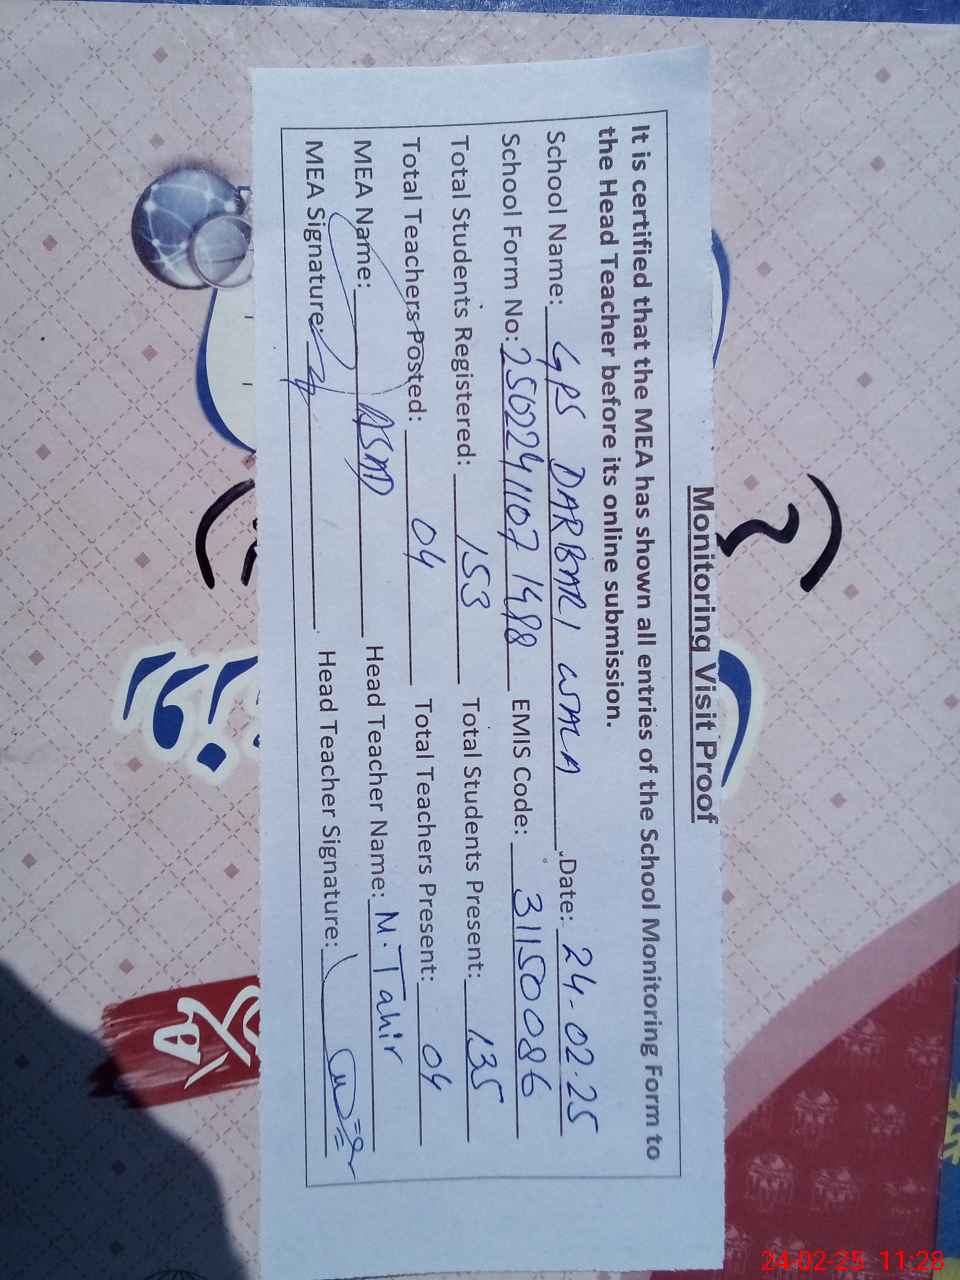 Monitoring Visit Proof
It is certified that the MEA has shown all entries of the School Monitoring Form to
the Head Teacher before its online submission.
School Name: GPS DARBARI WALA Date: 24-02-25
School Form No: 2502241107 1498 EMIS Code: 31150086
Total Students Registered: 153 Total Students Present: 135
Total Teachers Posted: 04 Total Teachers Present: 04
MEA Name: ASAD Head Teacher Name: M. Tahir
MEA Signature: Head Teacher Signature:
24-02-25 11:28